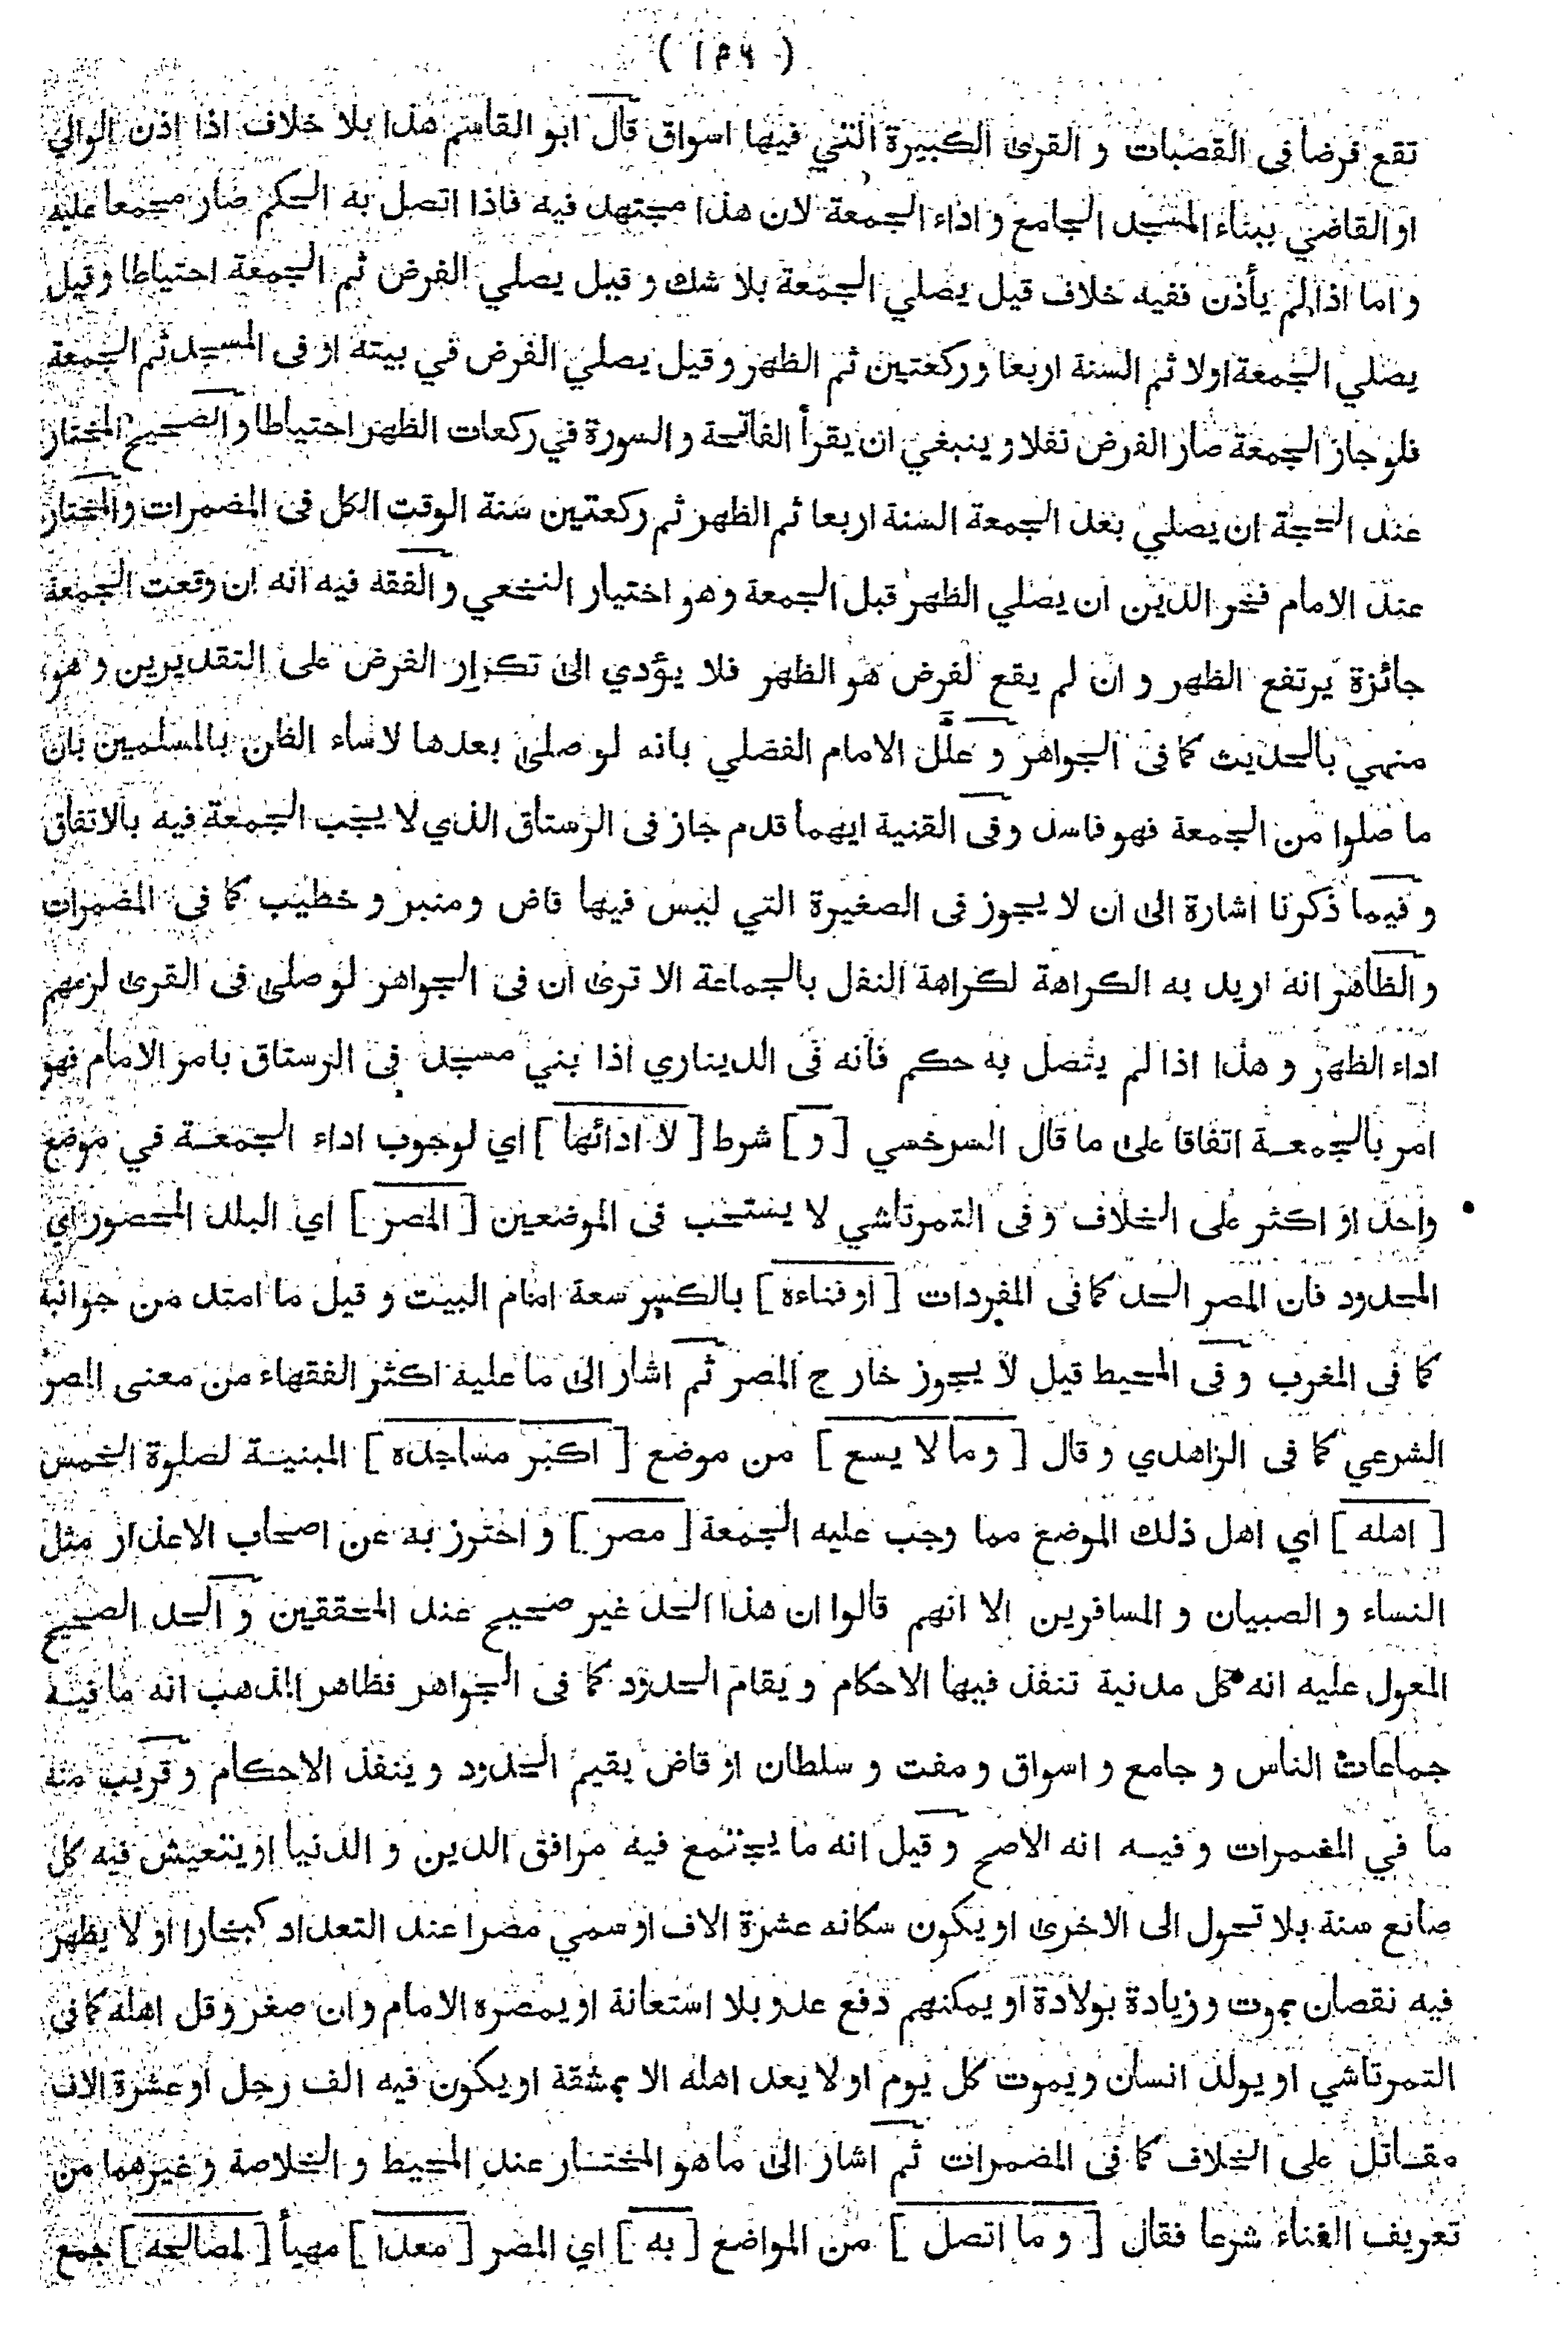 ( ١٣٦ )
تقع فرضا فى القصبات و القرى الكبيرة التي فيها اسواق قال ابو القاسم هذا بلا خلاف اذا اذن الوالي
او القاضي ببناء المسجد الجامع و اداء الجمعة لان هذا مجتهد فيه فاذا اتصل به الحكم صار مجمعا عليه
و اما اذا لم يأذن ففيه خلاف قيل يصلي الجمعة بلا شك و قيل يصلي الفرض ثم الجمعة احتياطا وقيل
يصلي الجمعة اولا ثم السنة اربعا وركعتين ثم الظهر وقيل يصلي الفرض في بيته او فى المسجد ثم الجمعة
فلو جاز الجمعة صار الفرض نفلا و ينبغي ان يقرأ الفاتحة و السورة في ركعات الظهر احتياطا و الصحيح المختار
عند الحجة ان يصلي بعد الجمعة السنة اربعا ثم الظهر ثم ركعتين سنة الوقت الكل فى المضمرات والمختار
عند الامام فخر الدين ان يصلي الظهر قبل الجمعة وهو اختيار النخعي والفقه فيه انه ان وقعت الجمعة
جائزة يرتفع الظهر و ان لم يقع لفرض هو الظهر فلا يؤدي الى تكرار الفرض على التقديرين و هو
منهي بالحديث كما فى الجواهر و علل الامام الفضلي بانه لو صلى بعدها لاساء الظن بالمسلمين بان
ما صلوا من الجمعة فهو فاسد وفى القنية ايهما قدم جاز فى الرستاق الذي لا يجب الجمعة فيه بالاتفاق
و فيما ذكرنا اشارة الى ان لا يجوز فى الصغيرة التي ليس فيها قاض و منبر و خطيب كما فى المضمرات
و الظاهر انه اريد به الكراهة لكراهة النفل بالجماعة الا ترى ان فى الجواهر لو صلى فى القرى لزمهم
اداء الظهر و هذا اذا لم يتصل به حكم فانه فى الديناري اذا بني مسجد فى الرستاق بامر الامام فهو
امر بالجمعـة اتفاقا على ما قال السرخسي [ و ] شرط [ لا ادائها ] اي لوجوب اداء الجمعـة في موضع
واحد او اكثر على الخلاف و فى التمرتاشي لا يستحب فى الموضعين [ المصر ] اي البلد المحصور اي
المحدود فان المصر الحد كما فى المفردات [ او فناءه ] بالكسر سعة امام البيت و قيل ما امتد من جوانبه
كما فى المغرب و فى المحيط قيل لا يجوز خارج المصر ثم اشار الى ما عليه اكثر الفقهاء من معنى المصر
الشرعي كما فى الزاهدي و قال [ و ما لا يسع ] من موضع [ اكبر مساجده ] المبنيـة لصلوة الخمس
[ اهله ] اي اهل ذلك الموضع مما وجب عليه الجمعة [ مصر ] و احترز به عن اصحاب الاعذار مثل
النساء و الصبيان و المسافرين الا انهم قالوا ان هذا الحد غير صحيح عند المحققين و الحد الصحيح
المعول عليه انه كل مدنية تنفذ فيها الاحكام و يقام الحدود كما فى الجواهر فظاهر المذهب انه ما فيـه
جماعات الناس و جامع و اسواق و مفت و سلطان او قاض يقيم الحدود و ينفذ الاحكام و قريب منه
ما في المضمرات و فيـه انه الاصح و قيل انه ما يجتمع فيه مرافق الدين و الدنيا او يتعيش فيه كل
صانع سنة بلا تحول الى الاخرى او يكون سكانه عشرة الاف او سمي مصرا عند التعداد كبخارا او لا يظهر
فيه نقصان بموت و زيادة بولادة او يمكنهم دفع عدو بلا استعانة او يمصره الامام و ان صغر و قل اهله كما فى
التمرتاشي او يولد انسان و يموت كل يوم او لا يعد اهله الا بمشقة او يكون فيه الف رجل او عشرة الاف
مقـاتل على الخلاف كما فى المضمرات ثم اشار الى ما هو المختـار عند المحيط و الخلاصة و غيرهما من
تعريف الفناء شرعا فقال [ و ما اتصل ] من المواضع [ به ] اي المصر [ معدا ] مهيأ [ لمصالحه ] جمع